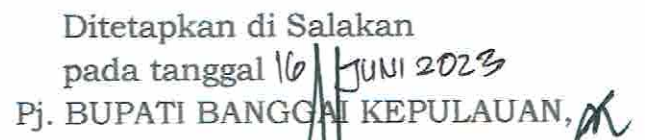 Ditetapkan di Salakan
pada tanggal 16 JUNI 2023
Pj. BUPATI BANGGAI KEPULAUAN,